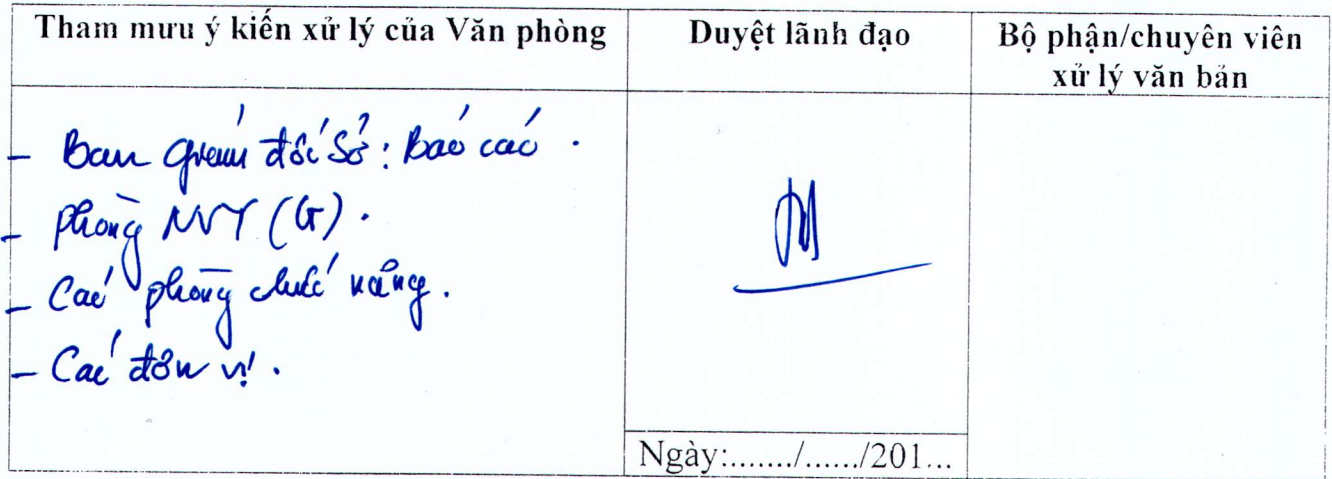 Tham mưu ý kiến xử lý của Văn phòng
Duyệt lãnh đạo
Bộ phận/chuyên viên
xử lý văn bản
- Ban Giám đốc Sở: Báo cáo.
- Phòng NVY (G).
- Các phòng chức năng.
- Các đơn vị.
Ngày:......./....../201...